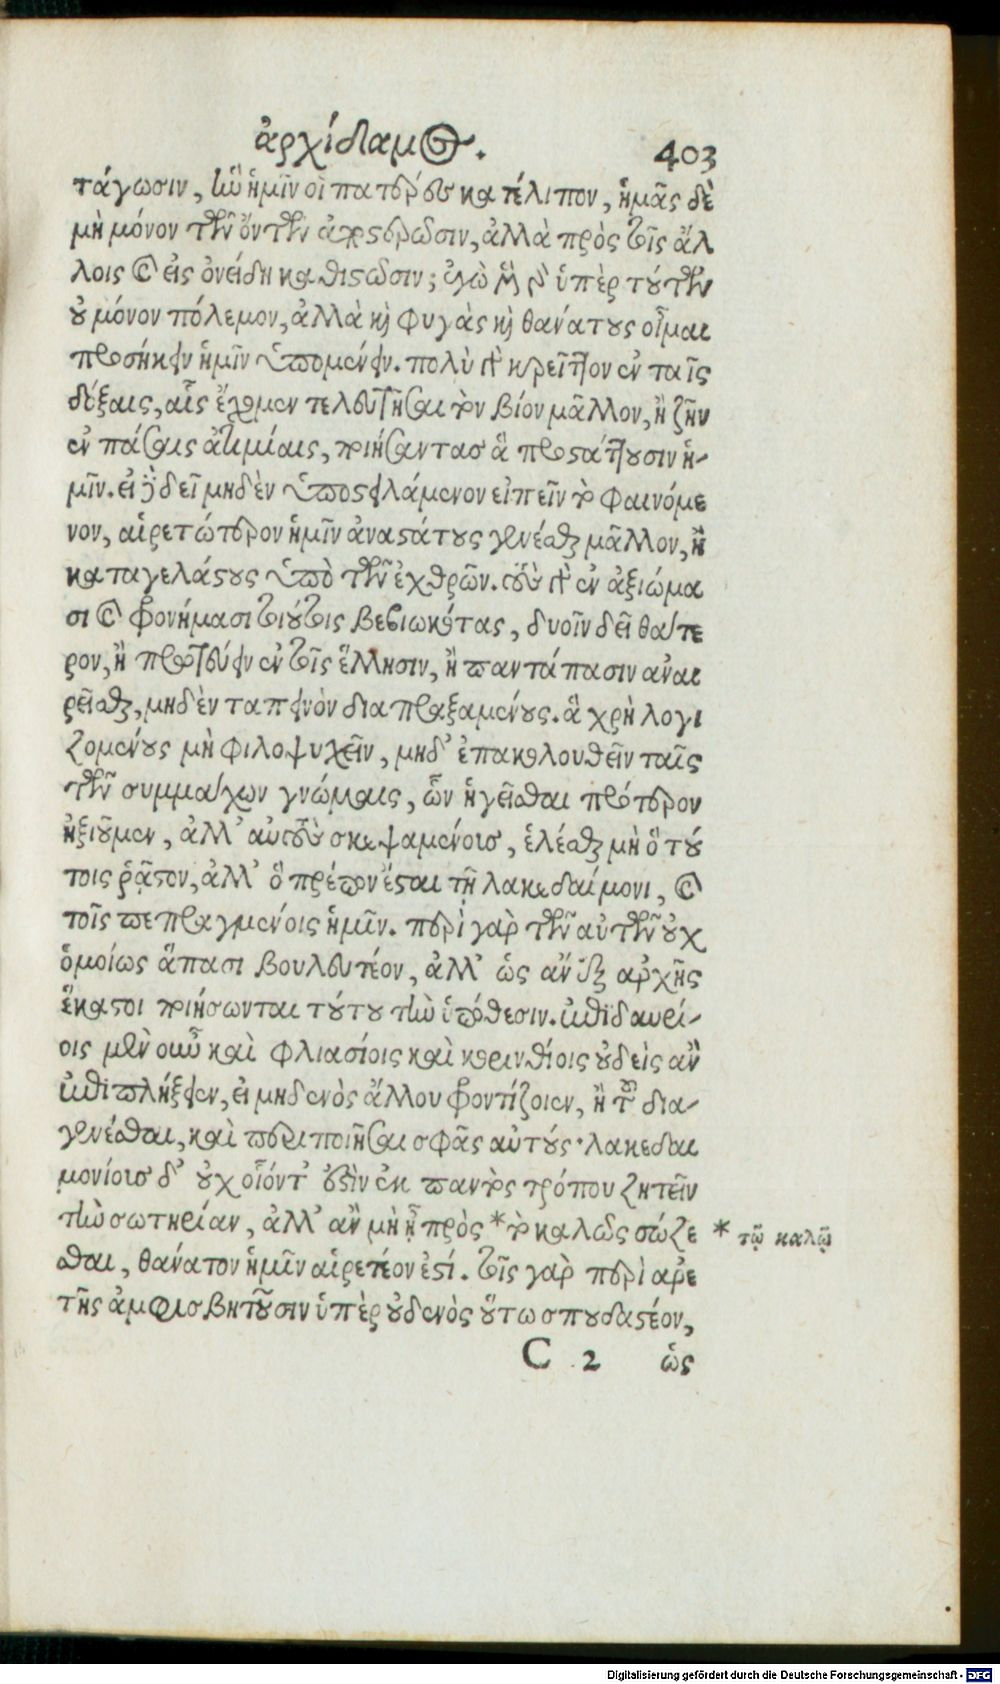 ἀρχίδαμος. 403
τάγωσιν, ἣν ἡμῖν οἱ πατέρες κατέλιπον, ἡμᾶς δὲ
μὴ μόνον τῶν ὄντων ἀποστερῶσιν, ἀλλὰ πρὸς τοῖς ἄλ
λοις καὶ εἰς ὀνείδη καθιστῶσιν; ἐγὼ μὲν γὰρ ὑπὲρ τούτων
οὐ μόνον πόλεμον, ἀλλὰ καὶ φυγὰς καὶ θανάτους οἶμαι
προσήκειν ἡμῖν ὑπομένειν. πολὺ γὰρ κρεῖττον ἐν ταῖς
δόξαις, αἷς ἔχομεν τελευτῆσαι τὸν βίον μᾶλλον, ἢ ζῆν
ἐν πάσαις ἀτιμίαις, ποιήσαντας ἃ προστάττουσιν ἡ-
μῖν. εἰ δὲ δεῖ μηδὲν ὑποστειλάμενον εἰπεῖν τὸ φαινόμε
νον, αἱρετώτερον ἡμῖν ἀναστάτους γενέσθαι μᾶλλον, ἢ
καταγελάστους ὑπὸ τῶν ἐχθρῶν. τοὺς γὰρ ἐν ἀξιώμα
σι καὶ φρονήμασι τοιούτοις βεβιωκότας, δυοῖν δεῖ θάτε
ρον, ἢ πρωτεύειν ἐν τοῖς ἕλλησιν, ἢ παντάπασιν ἀναι
ρεῖσθαι, μηδὲν ταπεινὸν διαπραξαμένους. ἃ χρὴ λογι
ζομένους μὴ φιλοψυχεῖν, μηδ' ἐπακολουθεῖν ταῖς
τῶν συμμάχων γνώμαις, ὧν ἡγεῖσθαι πρότερον
ἠξιοῦμεν, ἀλλ' αὐτοὺς σκεψαμένοις, ἑλέσθαι μὴ ὃ τού
τοις ῥᾷστον, ἀλλ' ὃ πρέπον ἔσται τῇ λακεδαίμονι, καὶ
τοῖς πεπραγμένοις ἡμῖν. περὶ γὰρ τῶν αὐτῶν οὐχ
ὁμοίως ἅπασι βουλευτέον, ἀλλ' ὡς ἂν ἐξ ἀρχῆς
ἕκαστοι ποιήσωνται τούτου τὴν ὑπόθεσιν. ἐπιδαυρί-
οις μὲν οὖν καὶ φλιασίοις καὶ κορινθίοις οὐδεὶς ἂν
ἐπιπλήξειεν, εἰ μηδενὸς ἄλλου φροντίζοιεν, ἢ τοῦ δια-
γενέσθαι, καὶ περιποιῆσαι σφᾶς αὐτούς· λακεδαι
μονίοις δ' οὐχ οἷόντ' ἐστὶν ἐκ παντὸς τρόπου ζητεῖν
τὴν σωτηρίαν, ἀλλ' ἂν μὴ ᾖ πρὸς *τὸ καλῶς σώζε * τῷ καλῷ
σθαι, θάνατον ἡμῖν αἱρετέον ἐστί. τοῖς γὰρ περὶ ἀρε
τῆς ἀμφισβητοῦσιν ὑπὲρ οὐδενὸς οὕτω σπουδαστέον,
C 2 ὡς
Digitalisierung gefördert durch die Deutsche Forschungsgemeinschaft - DFG